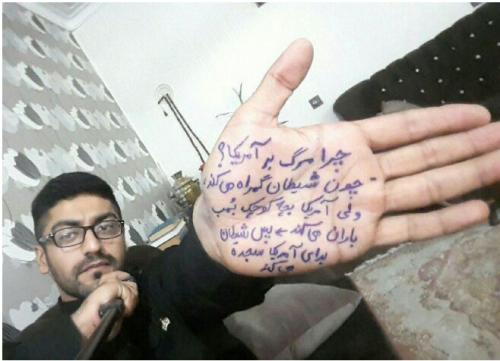 چرا مرگ بر آمریکا؟
چون شیطان گمراه می کند،
ولی آمریکا بچه کوچک بمب
باران می کند ← پس شیطان
برای آمریکا سجده
می کند